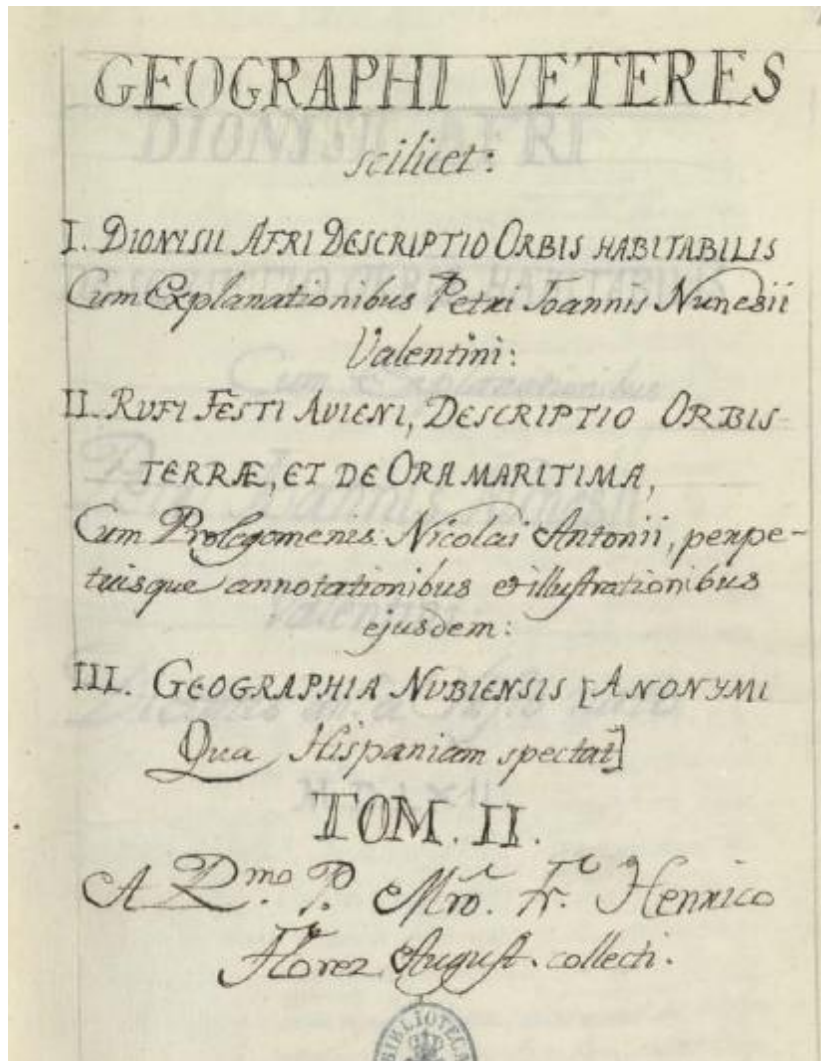 GEOGRAPHI VETERES
scilicet:
I. DIONISII AFRI DESCRIPTIO ORBIS HABITABILIS
Cum Explanationibus Petri Joannis Nunesii
Valentini:
II. RUFI FESTI AVIENI, DESCRIPTIO ORBIS
TERRÆ, ET DE ORA MARITIMA,
Cum Prolegomenis Nicolai Antonii, perpe-
tuisque annotationibus et illustrationibus
ejusdem:
III. GEOGRAPHIA NUBIENSIS [ANONYMI
Qua Hispaniam spectat]
TOM. II.
A R.mo P. Mro. Fr. Henrico
Florez August. collecti.
BIBLIOTECA